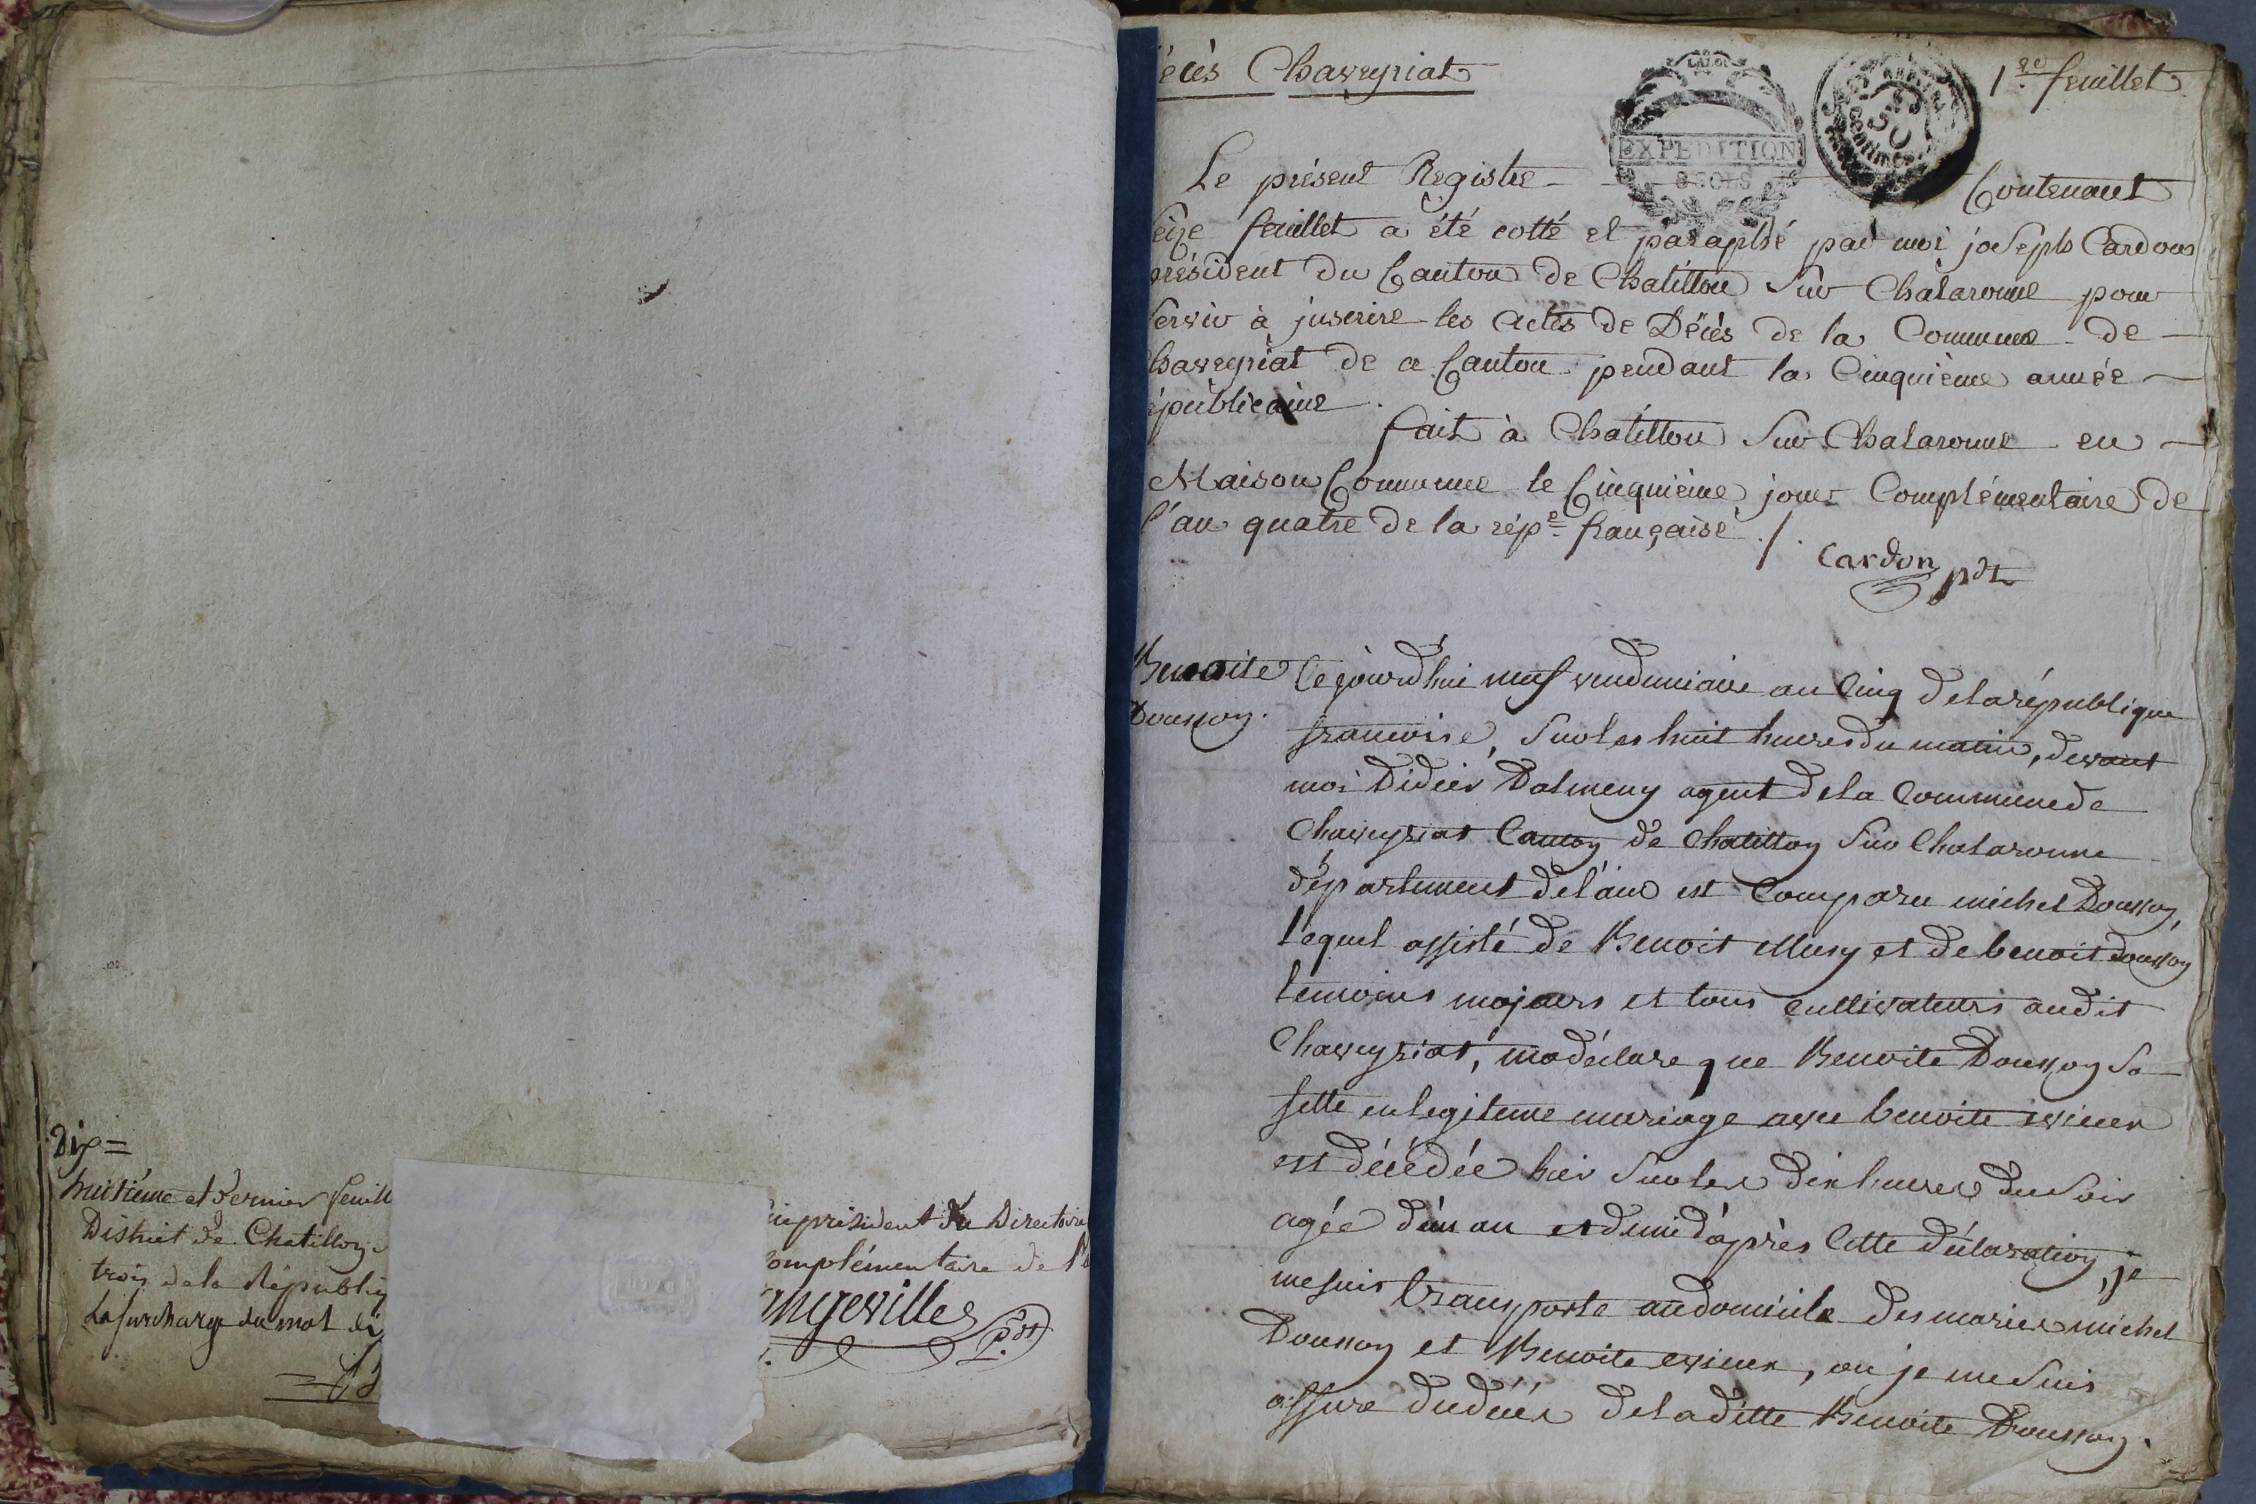 Dix=
huitième et dernier feuill
District de Chatillon
trois de la Républiq
La surcharge du mot di
président du Directoire
omplémentaire de l'
angeville
Pdt
écès Chaveyriat
1er feuillet
EXPEDITION
8 SOLS
50
centimes
Le présent Registre Contenant
seize feuillet a été cotté et paraphé par moi joseph Cardon
président du Canton de Chatillon sur Chalaronne pour
servir à juscrire les actes de Décès de la Commune de
haveyriat de ce Canton pendant la Cinquième année
épublicaine.
fait à Chatillon sur Chalaronne en
Maison Commune le Cinquième jour Complémentaire de
l'an quatre de la répe française ./.
Cardon pdt
Benoite
Cejourd'hui neuf vendemiaire an Cinq de la république
francoise, sur les huit heures du matin, devant
moi Didier Dalmeny agent de la Commune de
Chaveyriat Canton de Chatillon sur Chalaronne
département de l'ain est Comparu michel
lequel assisté de Benoit Musy et de benoit
temoins majeurs et tous cultivateurs audit
Chaveyriat, ma déclare que Benoite sa
fille en legiteme mariage avec benoite
est décédée hier sur les dix heures du soir
agée d'un an et demi d'après Cette déclaration, je
me suis transporte au domicile des maries michel
et Benoite, ou je me suis
assure du décès de la ditte Benoite